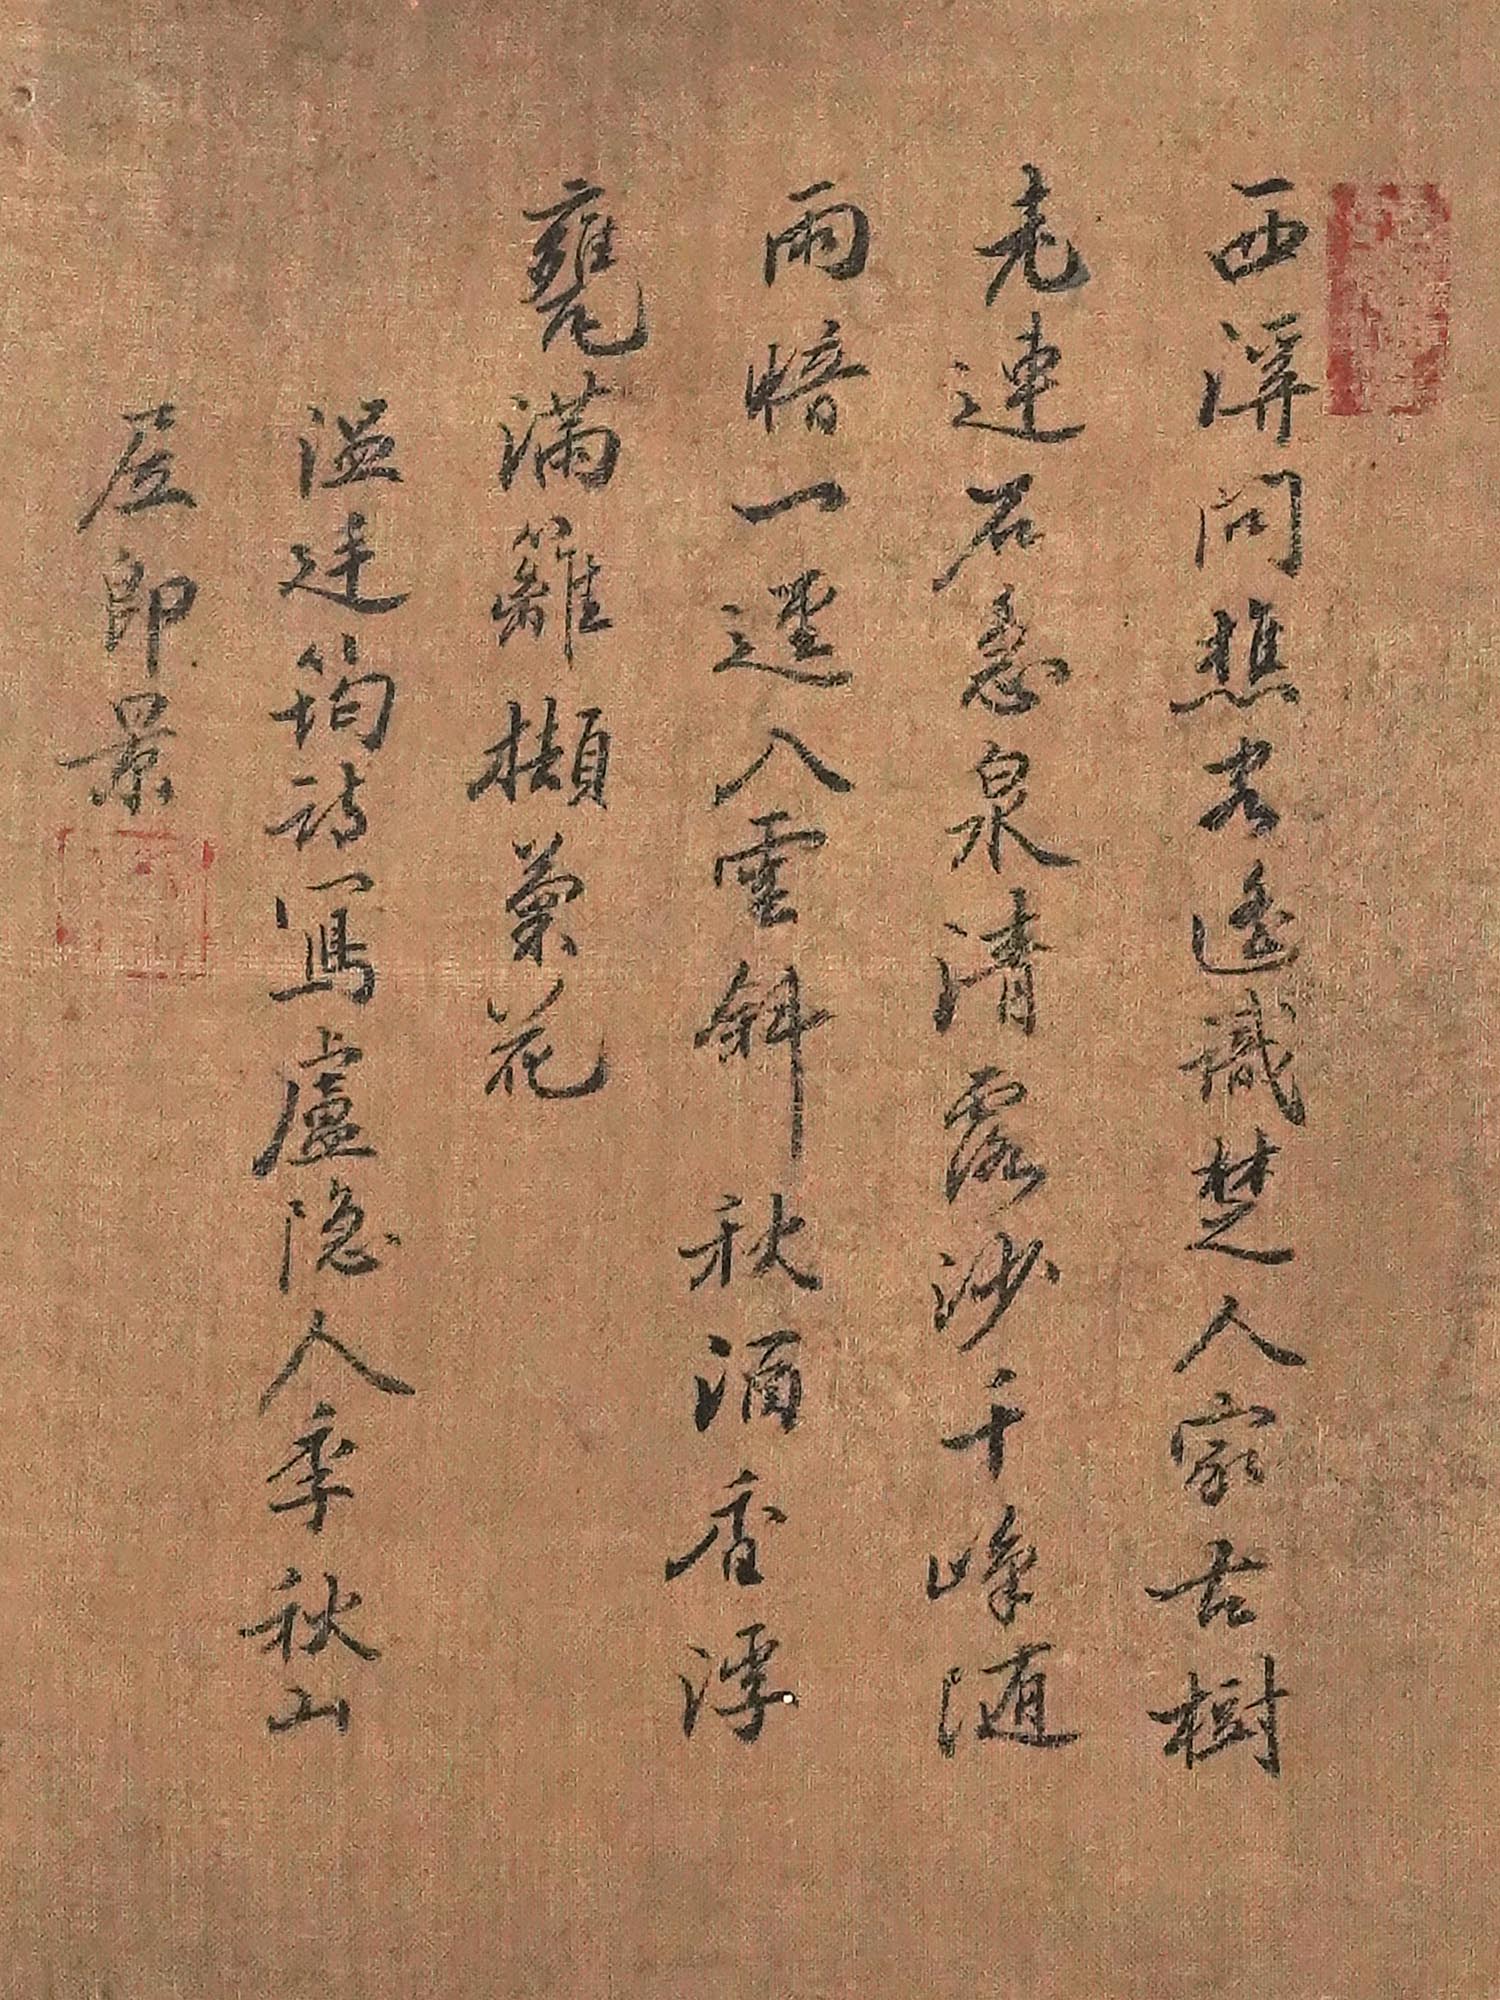 西溪問樵客遙識楚人家古樹
老連石急泉清露沙千峰随
雨暗一逕入雲斜秋酒香浮
甕滿籬擷菊花
溫廷筠詩寫盧隐人季秋山
居即景